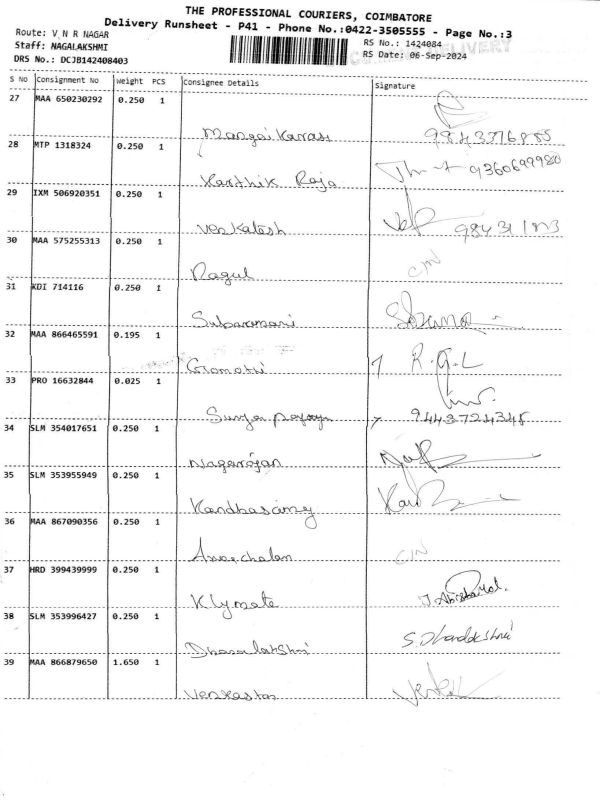 THE PROFESSIONAL COURIERS, COIMBATORE
Delivery Runsheet - P41 - Phone No.:0422-3505555 - Page No.:3
Route: V N R NAGAR
Staff: NAGALAKSHMI
DRS No.: DCJB142408403
RS No.: 1424084
RS Date: 06-Sep-2024
DELIVERY
S No Consignment No Weight PCS Consignee Details Signature
27 MAA 650230292 0.250 1
Mangai Karasi 9843376885
28 MTP 1318324 0.250 1
Karthik Raja 9360699980
29 IXM 506920351 0.250 1
Venkatesh
30 MAA 575255313 0.250 1 C/N
Ragul
31 KDI 714116 0.250 1
Subaramani
32 MAA 866465591 0.195 1
Gomathi R.G.L
33 PRO 16632844 0.025 1
Surya 9443724345
34 SLM 354017651 0.250 1
Nagarajan
35 SLM 353955949 0.250 1
Kandhasamy
36 MAA 867090356 0.250 1
C/N
37 HRD 399439999 0.250 1
Klymate
38 SLM 353996427 0.250 1
Dhanalakshmi
39 MAA 866879650 1.650 1